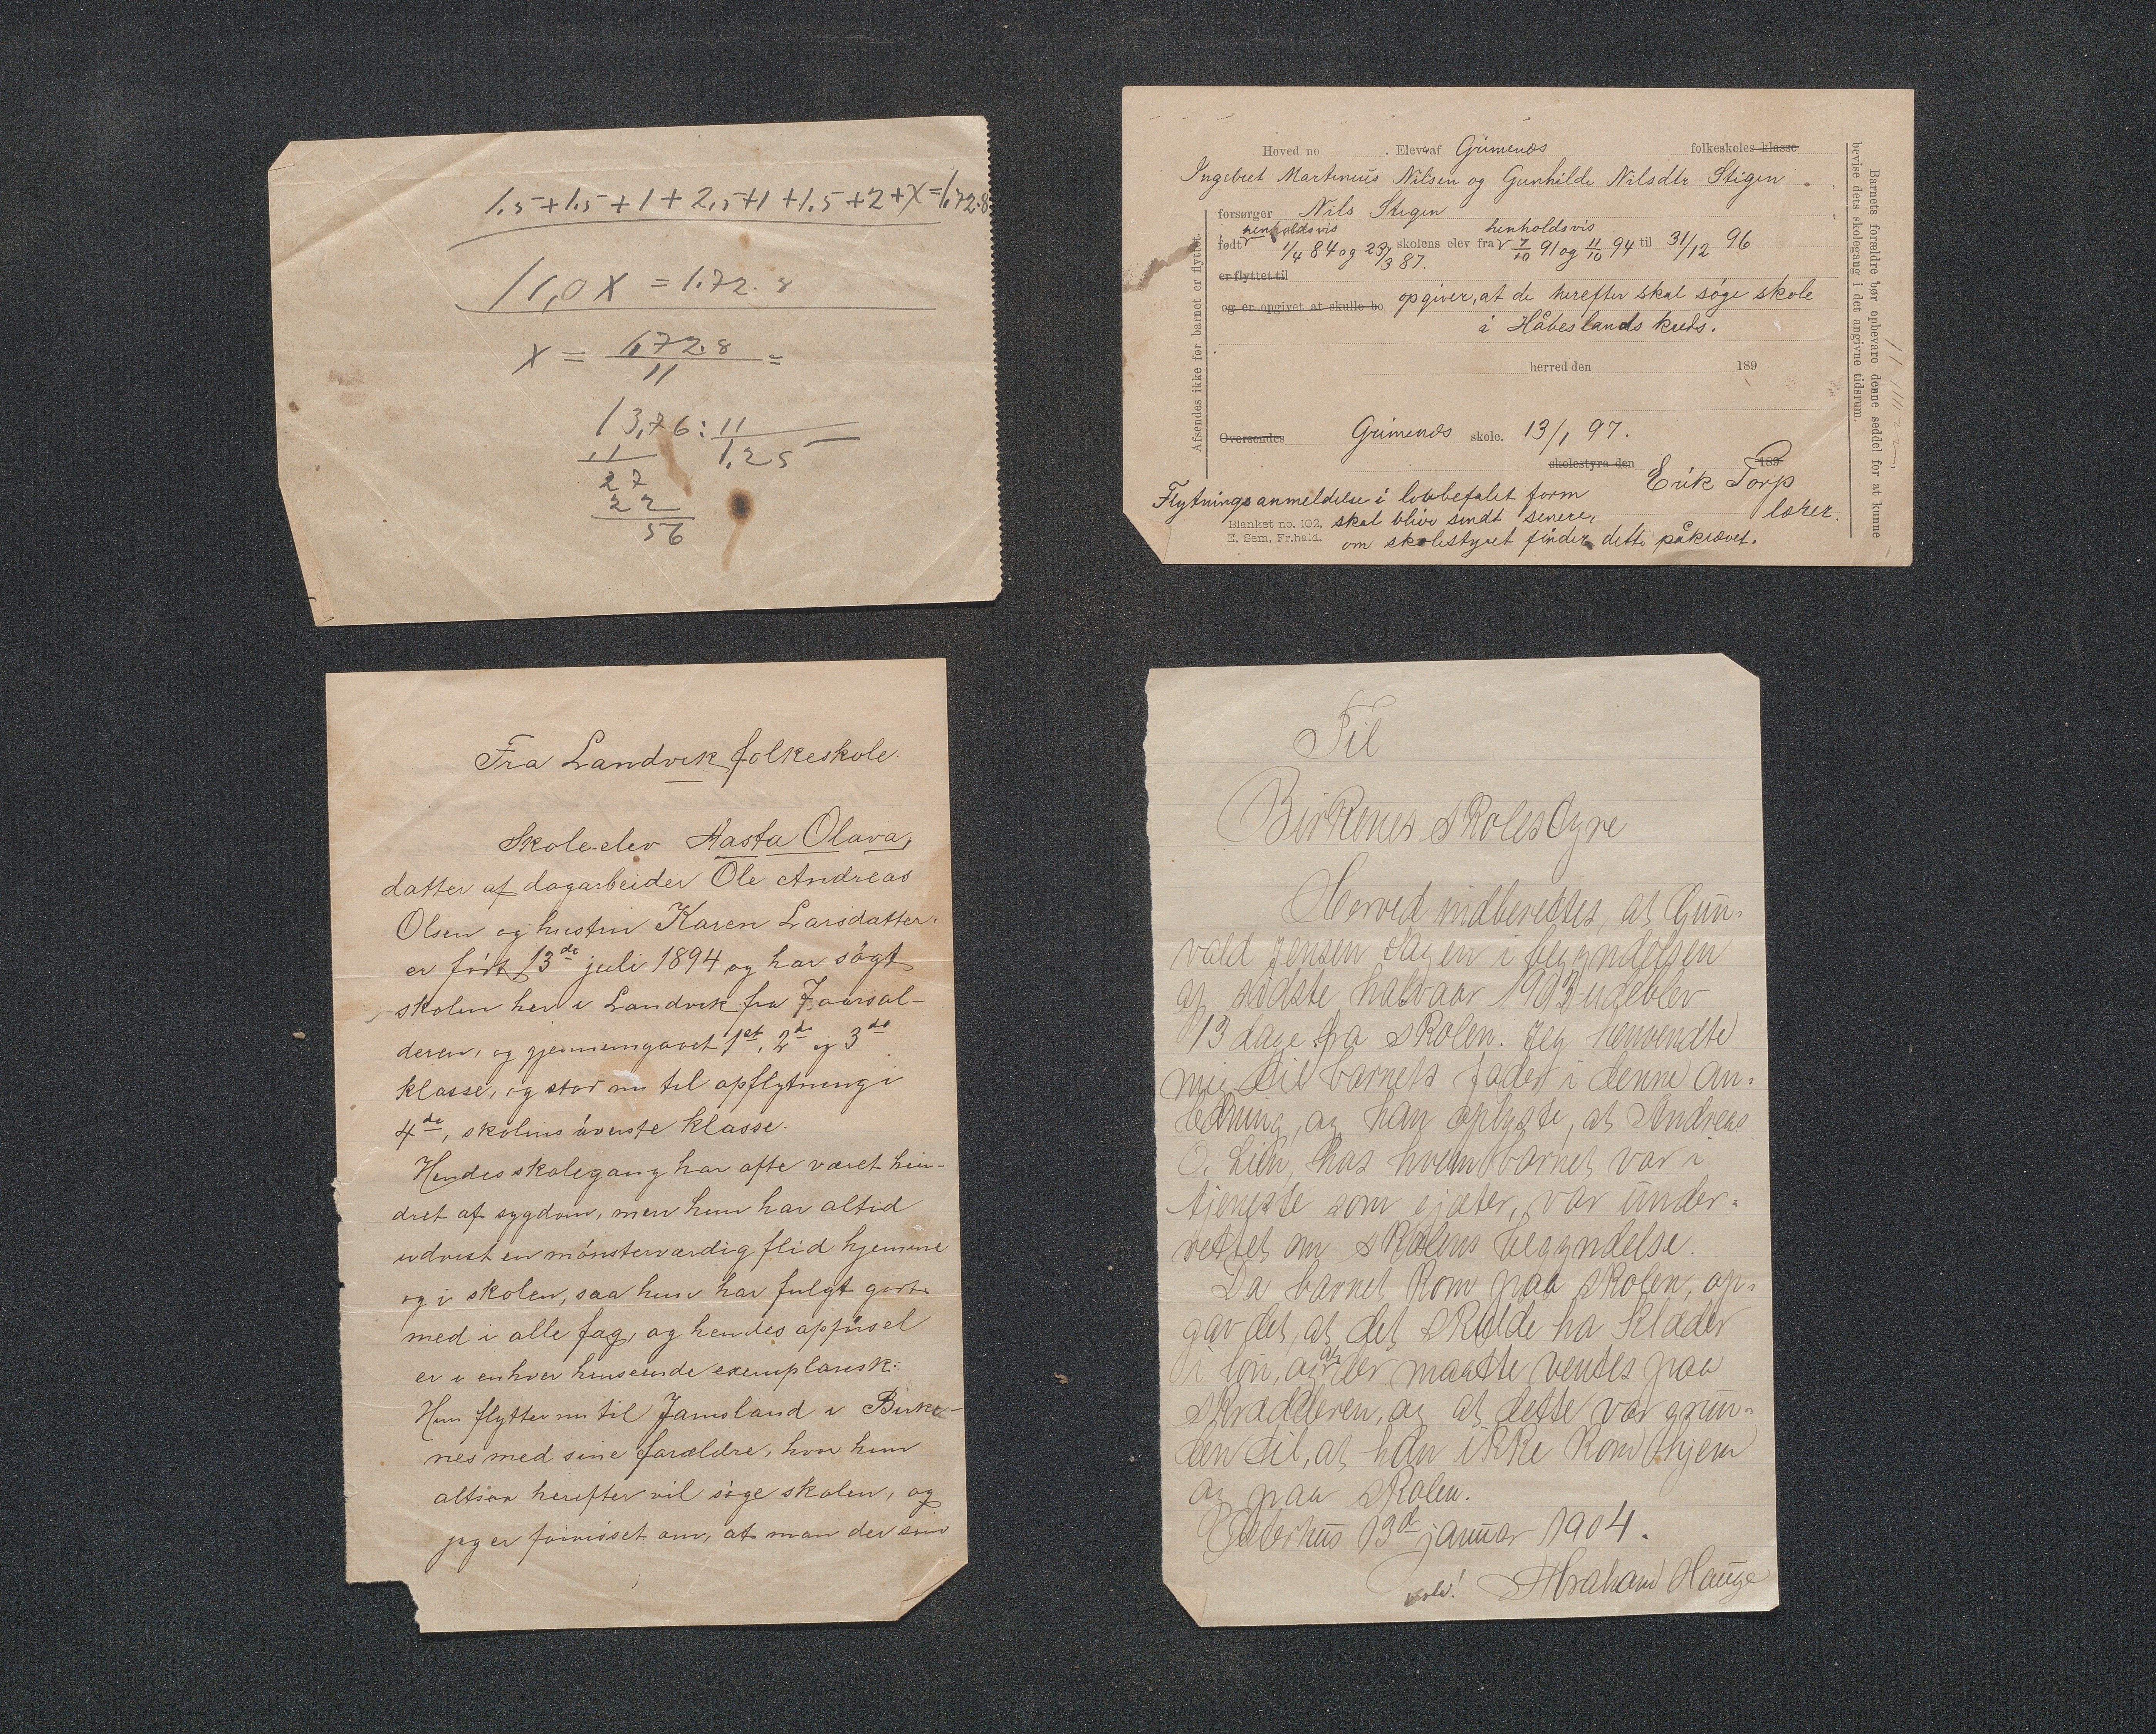 1.5+1.5+1+2,5+1+1.5+2+X=1.72.8
11,0X = 1.72.8
X = 1.72.8 =
11
13,76:11
11 1.25
27
22
56
Hoved no . Elever af Grimenæs folkeskoles klasse
Ingebret Martinius Nilsen og Gunhilde Nilsdtr Stigen.
forsørger Nils Stigen
henholdsvis henholdsvis
født 1/4 84 og 23/3 87. skolens elev fra 7/10 91 og 11/10 94 til 31/12 96
er flyttet til
og er opgivet at skulle bo opgiver, at de herefter skal søge skole
i Håbeslands kreds.
herred den 189
Oversendes Grimenæs skole. 13/1 97.
skolestyre den 189
Erik Torp
lærer.
Flytningsanmeldelse i lovbefalet form
Blanket no. 102. skal blive sendt senere,
E. Sem, Fr.hald. om skolestyret finder dette påkrævet.
Afsendes ikke før barnet er flyttet
Barnets forældre bør opbevare denne seddel for at kunne
bevise dets skolegang i det angivne tidsrum.
Fra Landvik folkeskole.
Skole-elev Aasta Olava,
datter af dagarbeider Ole Andreas
Olsen og hustru Karen Larsdatter.
er født 13de juli 1894 og har søgt
skolen her i Landvik fra 7 aarsal-
deren, og gjennemgaaet 1st, 2de og 3de
klasse, og staar nu til opflytning i
4de, skolens øverste klasse.
Hendes skolegang har ofte været hin-
dret af sygdom, men hun har altid
udvist en mønsterværdig flid hjemme
og i skolen, saa hun har fulgt godt
med i alle fag, og hendes opførsel
er i enhver henseende exemplarisk.
Hun flytter nu til Jamsland i Birke-
nes med sine forældre, hvor hun
altsaa herefter vil søge skolen, og
jeg er forvisset om, at man der som
Til
Birkenes skolestyre
Herved indberettes, at Gun-
vald Jensen Lagen i begyndelsen
af sidste halvaar 1903 udeblev
13 dage fra skolen. Jeg henvendte
mig til barnets fader i denne an-
ledning, og han oplyste, at Andreas
O. Lien, hos hvem barnet var i
tjeneste som gjæter, var under-
rettet om skolens begyndelse.
Da barnet kom paa skolen, op-
gav det, at det skulde ha klæder
i løn, og at der maatte ventes paa
skrædderen, og at dette var grun-
den til, at han ikke kom hjem
og paa skolen.
13de januar 1904.
Abraham Hauge